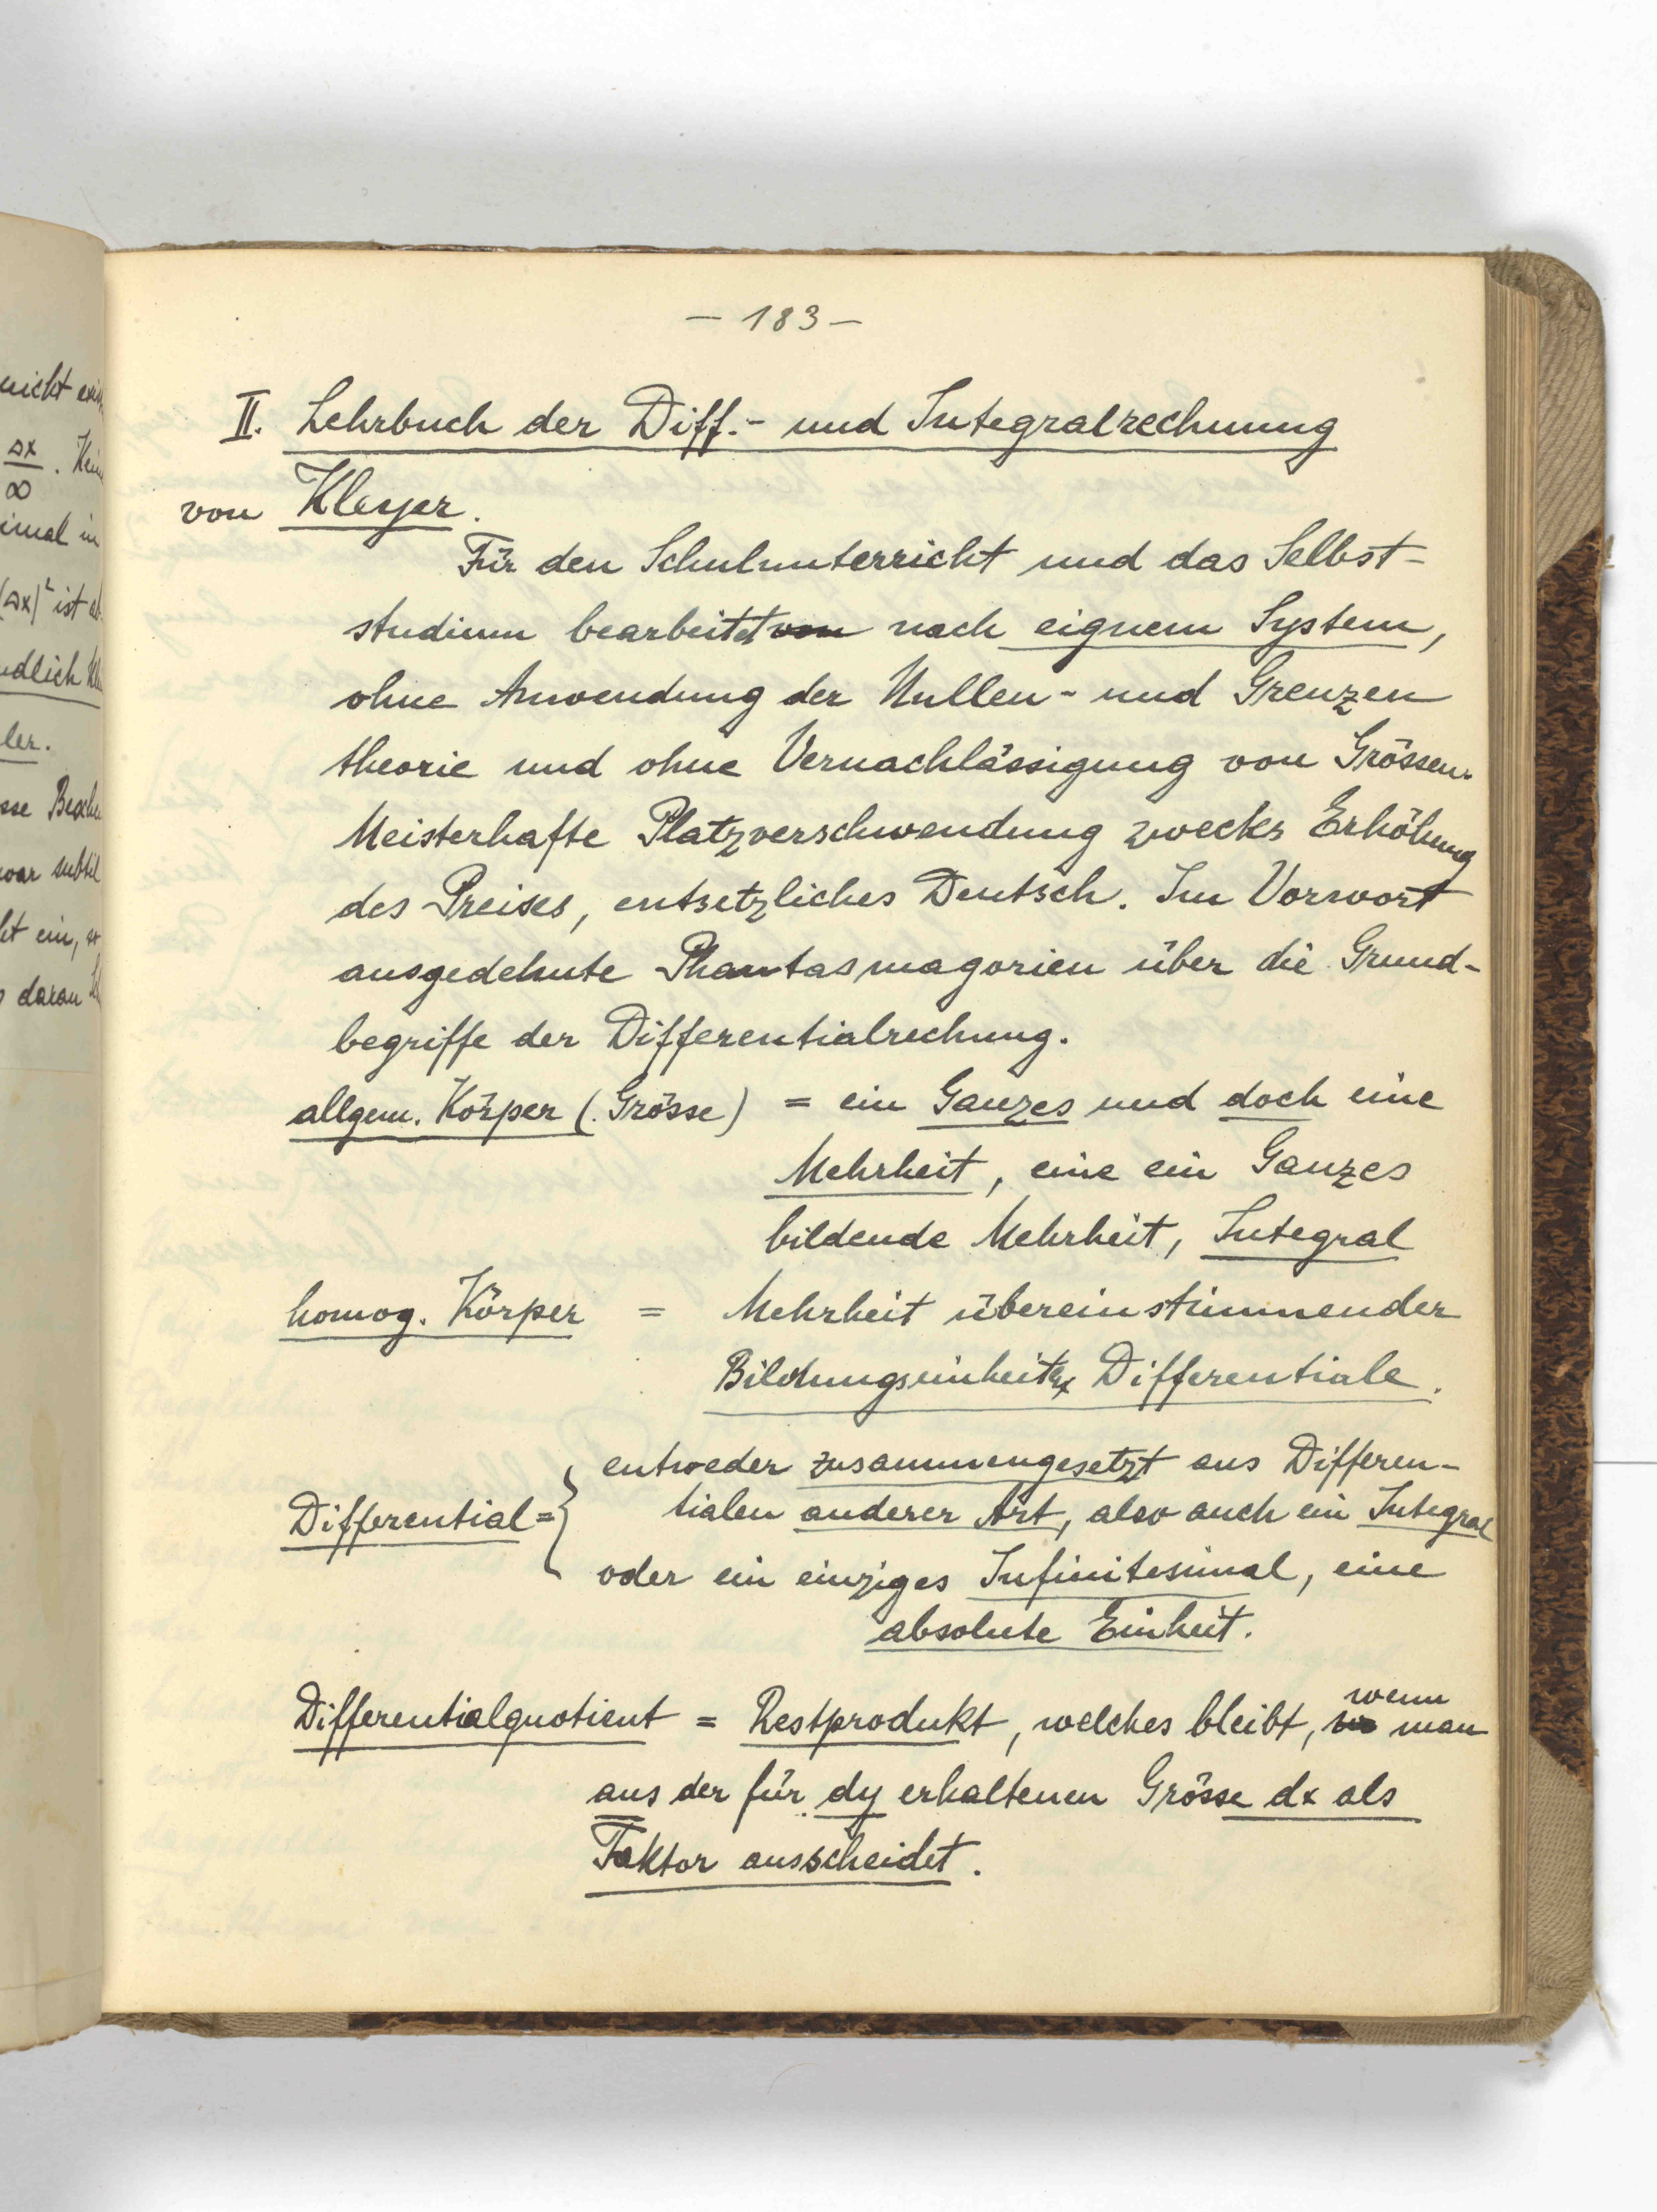 nicht
Δx
∞
imal in
(Δx)² ist
ndlich
ler.
sse
war subtil
ht ein,
daran
- 183 -
II. Lehrbuch der Diff.- und Integralrechnung
von Kleyer.
Für den Schulunterricht und das Selbst-
studium bearbeitet von nach eignem System,
ohne Anwendung der Nullen- und Grenzen
theorie und ohne Vernachlässigung von Grössen.
Meisterhafte Platzverschwendung zwecks Erhöhung
des Preises, entsetzliches Deutsch. Im Vorwort
ausgedehnte Phantasmagorien über die Grund-
begriffe der Differentialrechung.
allgem. Körper (Grösse) = ein Ganzes und doch eine
Mehrheit, eine ein Ganzes
bildende Mehrheit, Integral
homog. Körper = Mehrheit übereinstimmender
Bildungseinheiten Differentiale.
entweder zusammengesetzt aus Differen-
Differential = { tialen anderer Art, also auch ein Integral
oder ein einziges Infinitesimal, eine
absolute Einheit.
wenn
Differentialquotient = Restprodukt, welches bleibt, wo man
aus der für dy erhaltenen Grösse dx als
Faktor ausscheidet.